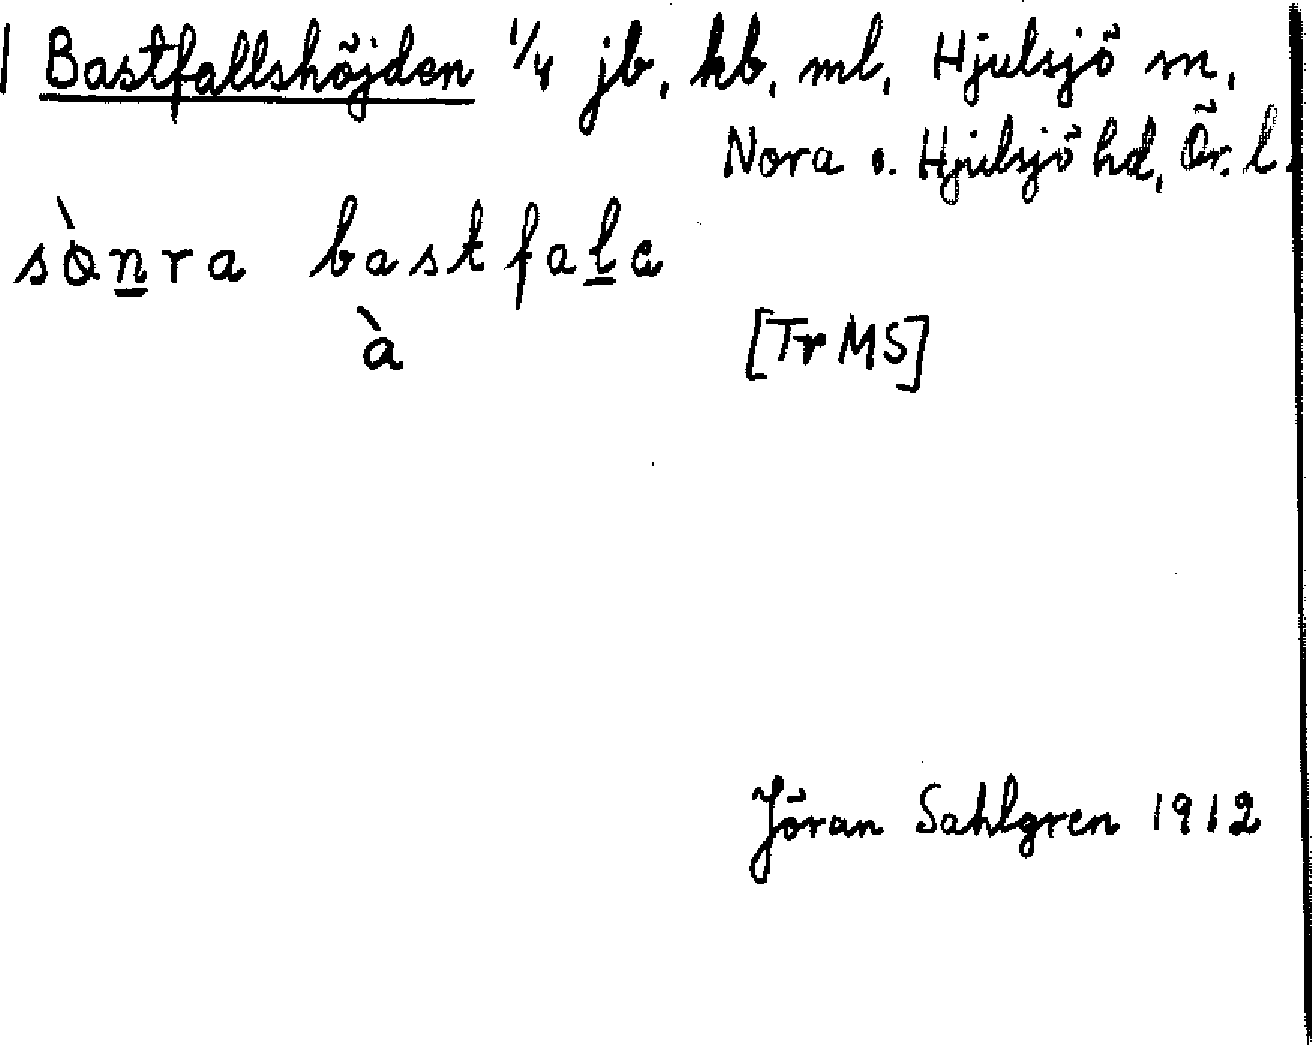 1 Bastfallshöjden 1/4 jb, kb, ml, Hjulsjö sn,
Nora o. Hjulsjö hd, Ör. l.
sònra bastfala
à
[Tr MS]
Jöran Sahlgren 1912